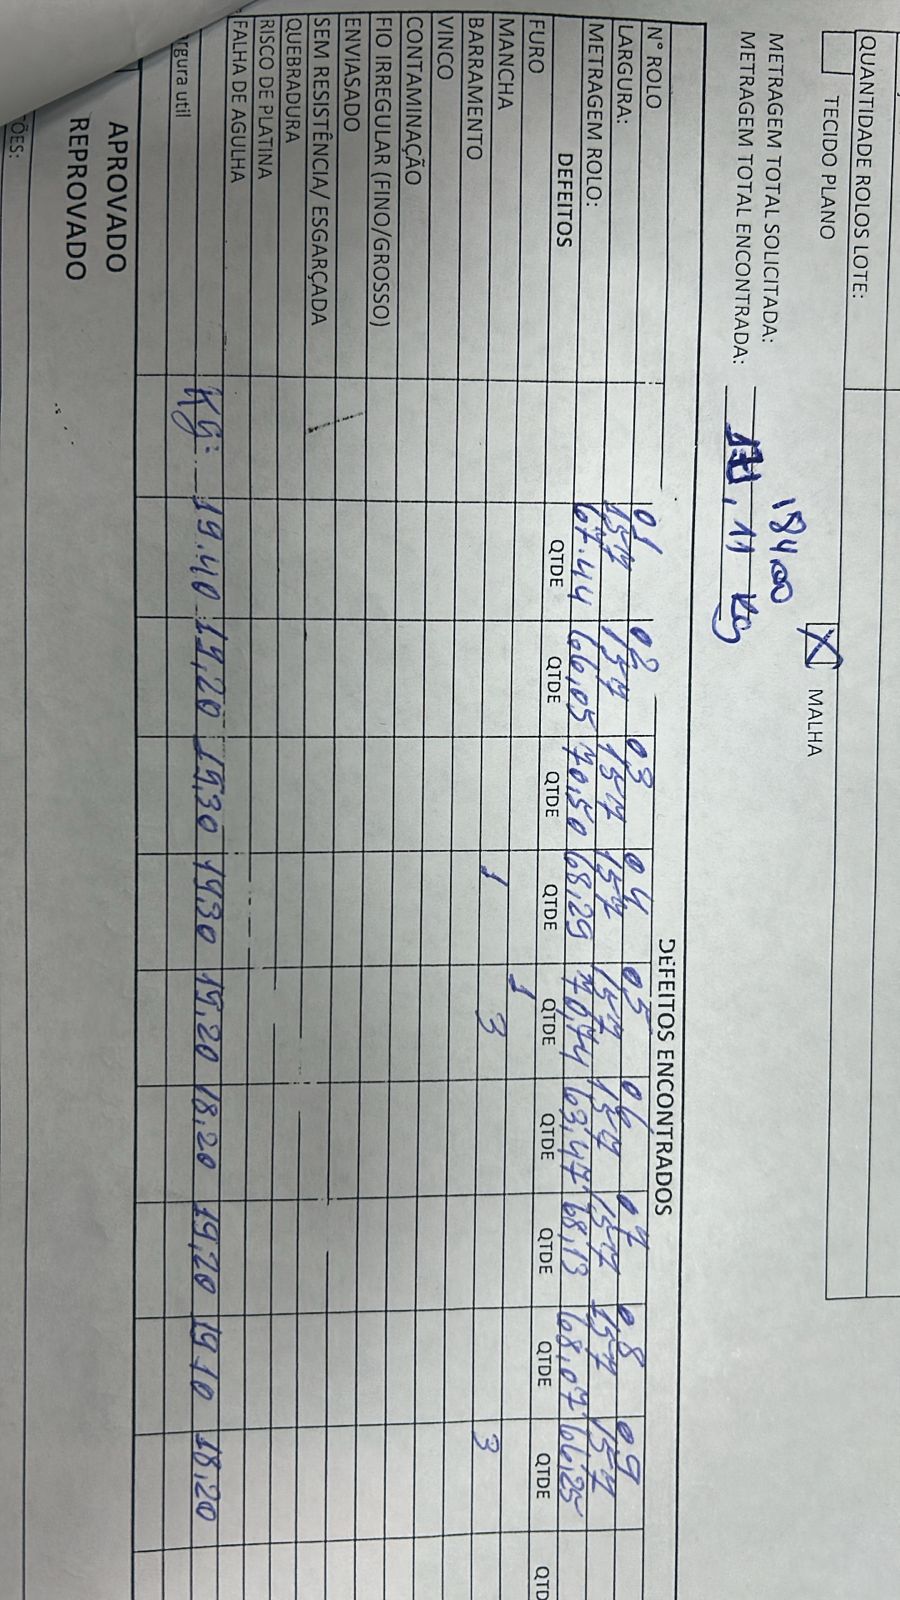 QUANTIDADE ROLOS LOTE:
TECIDO PLANO X MALHA
METRAGEM TOTAL SOLICITADA: 184,00
METRAGEM TOTAL ENCONTRADA: ,11 Kg
DEFEITOS ENCONTRADOS
N° ROLO 01 02 03 04 05 06 07 08 09
LARGURA: 157 157 157 157 157 157 157 157 157
METRAGEM ROLO: 67.44 66,05 70,50 68,29 70,74 63,47 68,13 68,07 66,25
DEFEITOS QTDE QTDE QTDE QTDE QTDE QTDE QTDE QTDE QTDE QTD
FURO
MANCHA 1
BARRAMENTO 1 3 3
VINCO
CONTAMINAÇÃO
FIO IRREGULAR (FINO/GROSSO)
ENVIASADO
SEM RESISTÊNCIA/ ESGARÇADA
QUEBRADURA
RISCO DE PLATINA
FALHA DE AGULHA
Kg: 19.40 19,20 19,30 19,30 19,20 18,20 19,20 19 10 18,20
rgura util
APROVADO
REPROVADO
ÕES: